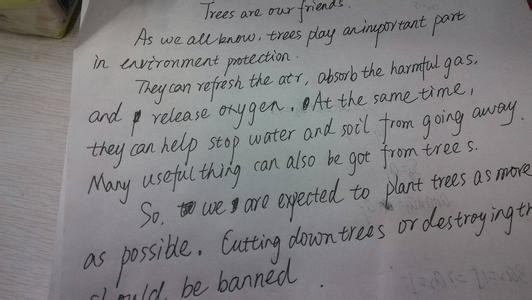 Trees are our friends.
As we all know, trees play an important part
in environment protection.
They can refresh the air, absorb the harmful gas,
and release oxygen. At the same time,
they can help stop water and soil from going away.
Many useful thing can also be got from trees.
So, we are expected to plant trees as more
as possible. Cutting down trees or destroying th
should be banned